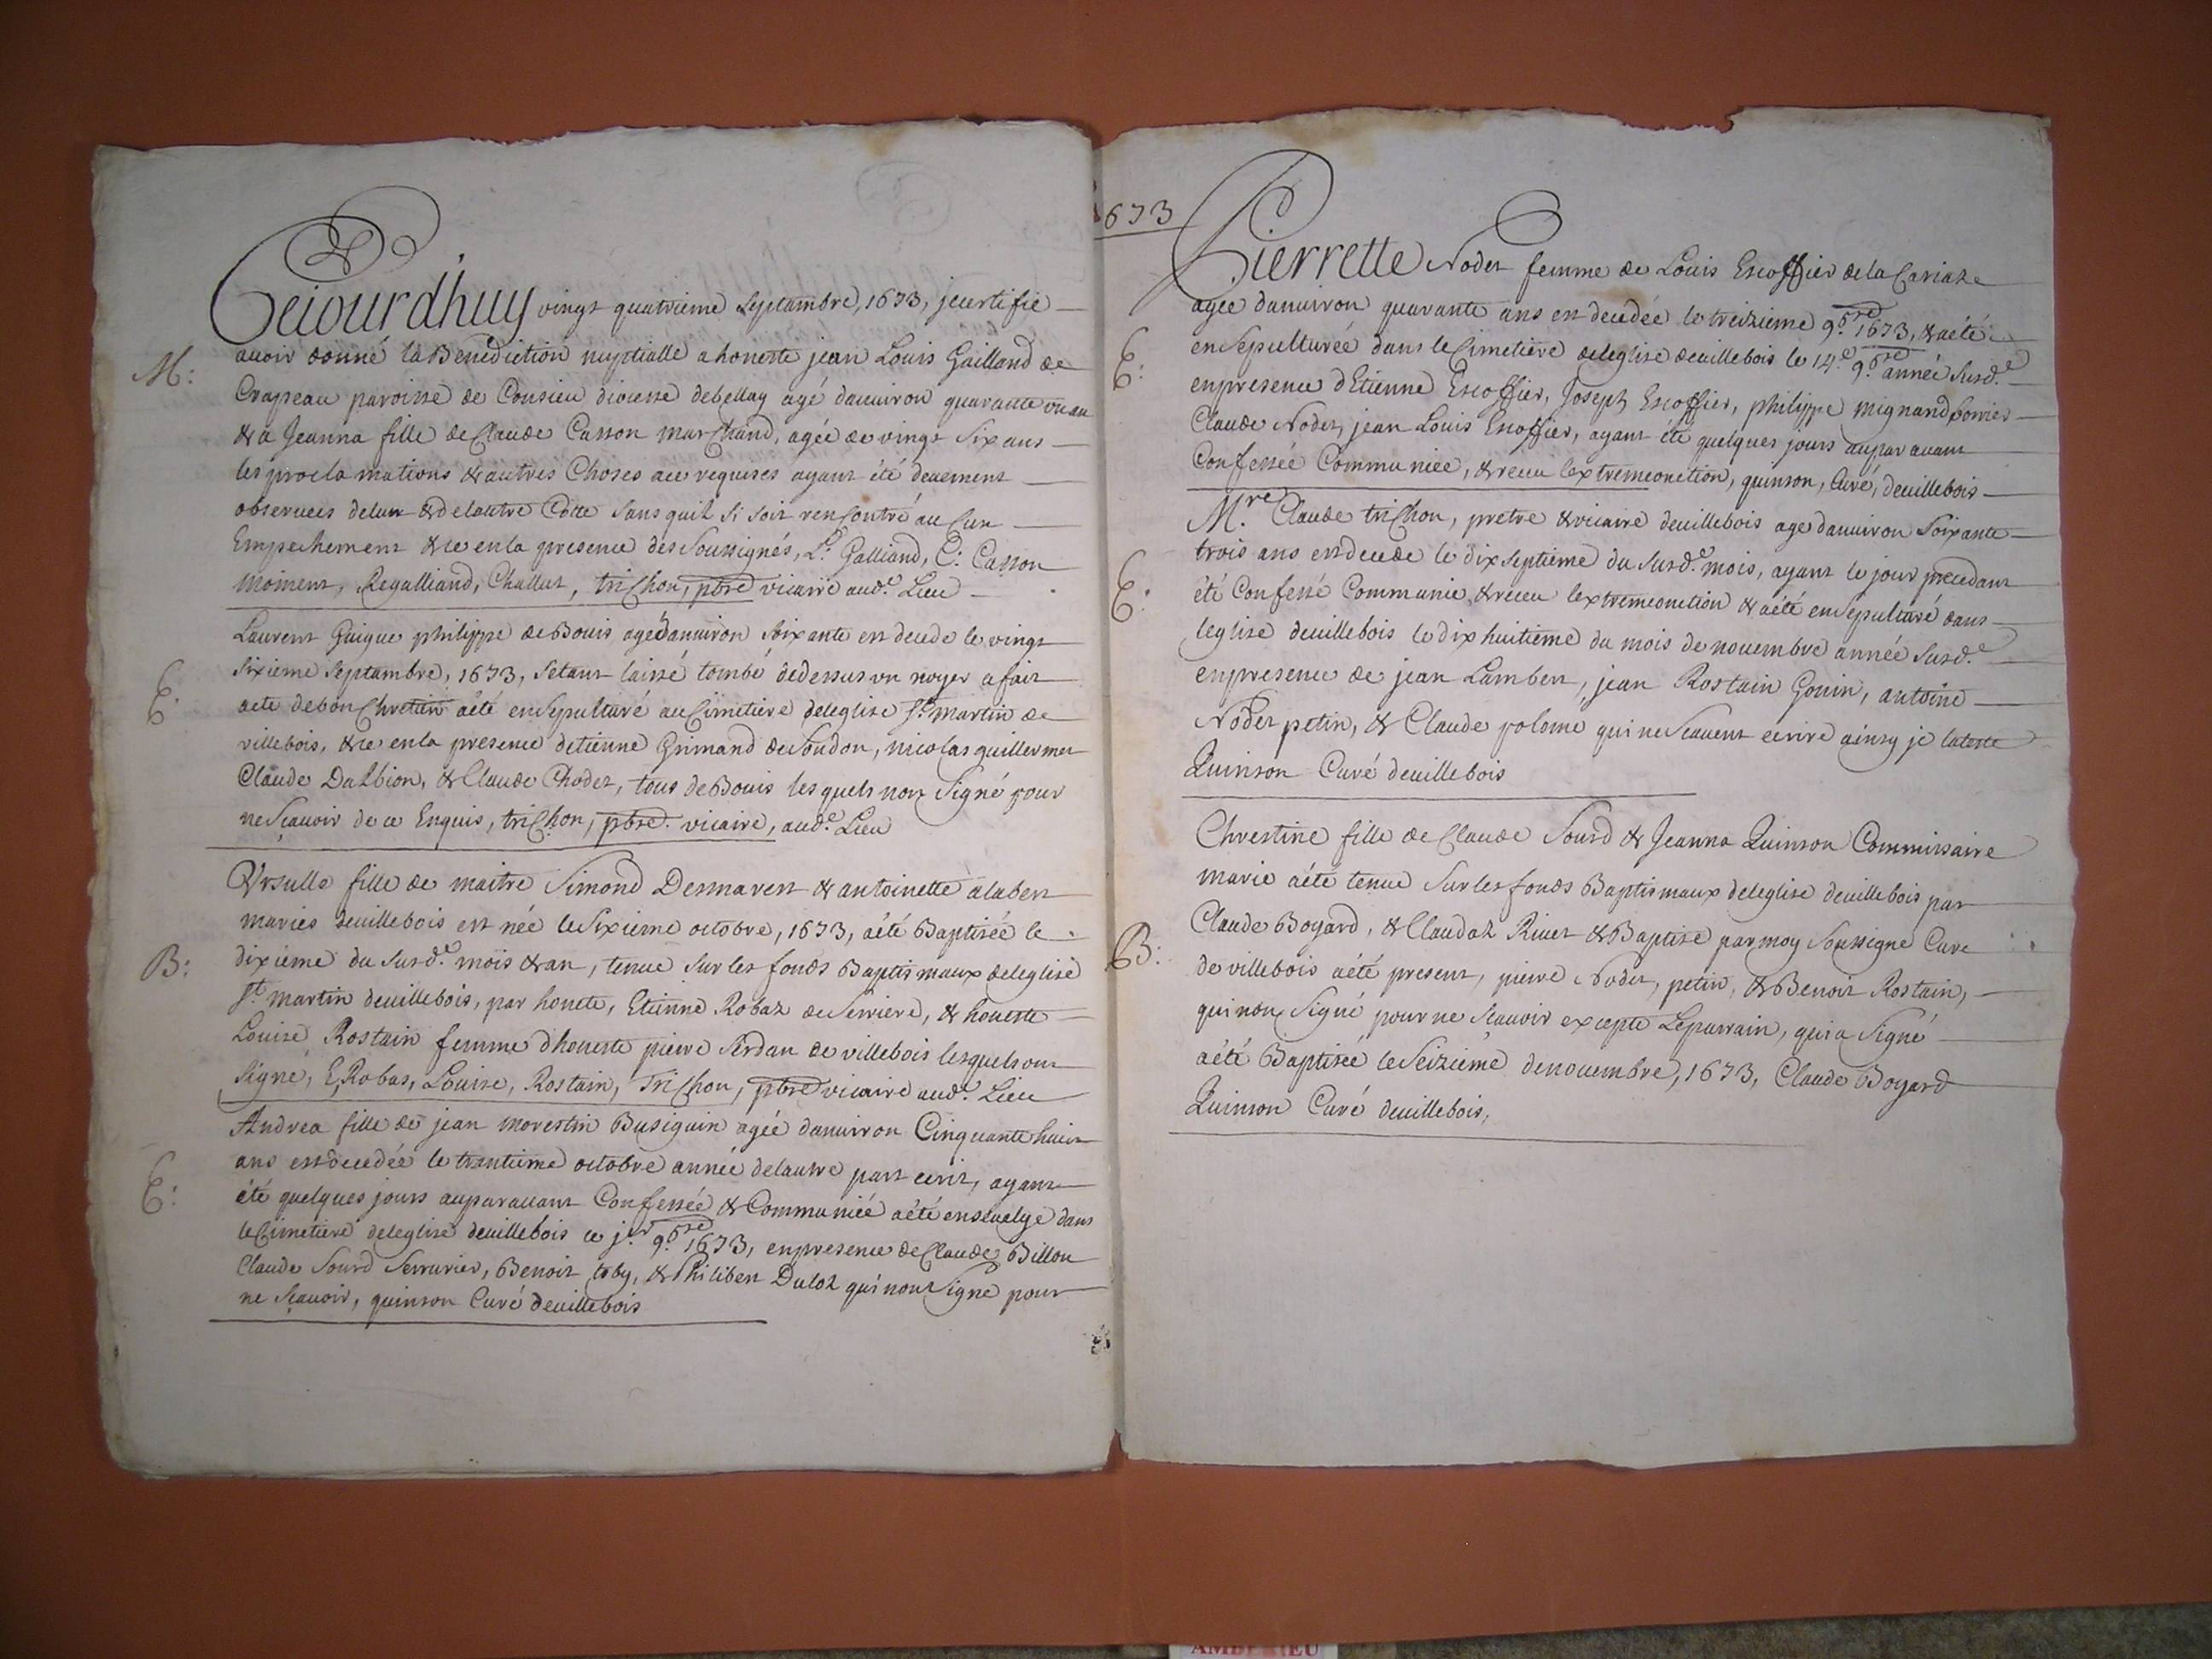 Cejourdhuy vingt quatrieme Septambre, 1673, jcertifie
M: auoir donné la Benediction nuptialle a honeste jean Louis Gailland de
Crapeau paroisse de Consieu diocesse debellay agé danuiron quarante vn an
& a Jeanna fille de Claude Casson marchand, agée de vingt Six ans
les proclamations & autres Choses ace requises ayant été deuement
obseruees delun & delautre Cotte Sans quil Si soit rencontré aucun
Empechement & ce enla presence des Soussignés, L: Galliand, C: Casson
moiment, Regalliand, Challut, trichon, pbre vicaire aud.e Lieu
Laurent Guigue philippe deBouis agé danuiron soixante est decede le vingt
sixieme Septambre, 1673, Setant laissé tombé dedessus vn noyer a fait
E: acte debon Chretien aété enSepulturé au Cimetiere deleglise St. martin de
villebois, & ce enla presence detienne Grimand deSoudon, nicolas guillermet
Claude Dalbion, & Claude Chodet, tous deBouis lesquels nont Signé pour
ne Sçauoir de ce Enquis, trichon, pbre. vicaire, aud.e Lieu
Vrsulle fille de maitre Simond Desmarest & antoinette alabert
maries deuillebois est née le Sixieme octobre, 1673, aété Baptisée le
B: dixiéme du Susd.e mois & an, tenue Sur les fonds Baptismaux deleglise
St martin deuillebois, par honete, Etienne Robaz deSerriere, & honeste
Louise Rostain femme dhoneste pierre Serdan de villebois lesquels ont
Signé, E, Robas, Louise, Rostain, Trichon, pbre vicaire aud.e Lieu
Andrea fille de jean morestin Busiguin agée danuiron Cinquante huit
ans est decedée le trentieme octobre année delautre part ecrit, ayant
E: été quelques jours auparauant Confessée & Communiée aété enseuelye dans
le Cimetiere deleglise deuillebois ce jer 9.bre 1673, enpresence de Claude Billon
Claude Sourd Serrurier, Benoit toby, & Philibert Duloz qui nont Signe pour
ne Sçauoir, quinson Curé deuillebois
1673
Pierrette Nodet femme de Louis Escoffier dela Cariaze
agée danuiron quarante ans est decedée le treizieme 9.bre 1673, & aété
E: enSepulturée dans le Cimetiere deleglise deuillebois le 14.e 9.bre année Susd.e
enpresence d'Etienne Escoffier, Joseph Escoffier, philippe mignand
Claude Nodet, jean Louis Escoffier, ayant été quelques jours auparauant
Confessée Communiee, & receu lextremeonction, quinson, Curé, deuillebois
M.re Claude trichon, pretre & vicaire deuillebois age danuiron Soixante
trois ans est decede le dix Septieme du Susd.e mois, ayant le jour precedant
E: été Confessé Communie, & receu lextremeonction & aété enSepulturé dans
leglise deuillebois le dix huitieme du mois de nouembre année Susd.e
enpresence de jean Lambert, jean Rostain Gonin, antoine
Nodet petin, & Claude polome qui ne Scauent ecrire ainsy je lateste
Quinson Curé deuillebois
Chrestine fille de Claude Sourd & Jeanna Quinson Commissaire
marie aété tenue Sur les fonds Baptismaux deleglise deuillebois par
B: Claude Bogard, & Claudaz Riuet & Baptise par moy Soussigne Cure
de villebois aété present, pierre Nodet, petin, & Benoit Rostain,
qui nont Signé pour ne Scauoir excepte Leparrain, qui a Signé
aété Baptisée le Seizieme denouembre, 1673, Claude Bogard
Quinson Curé deuillebois,